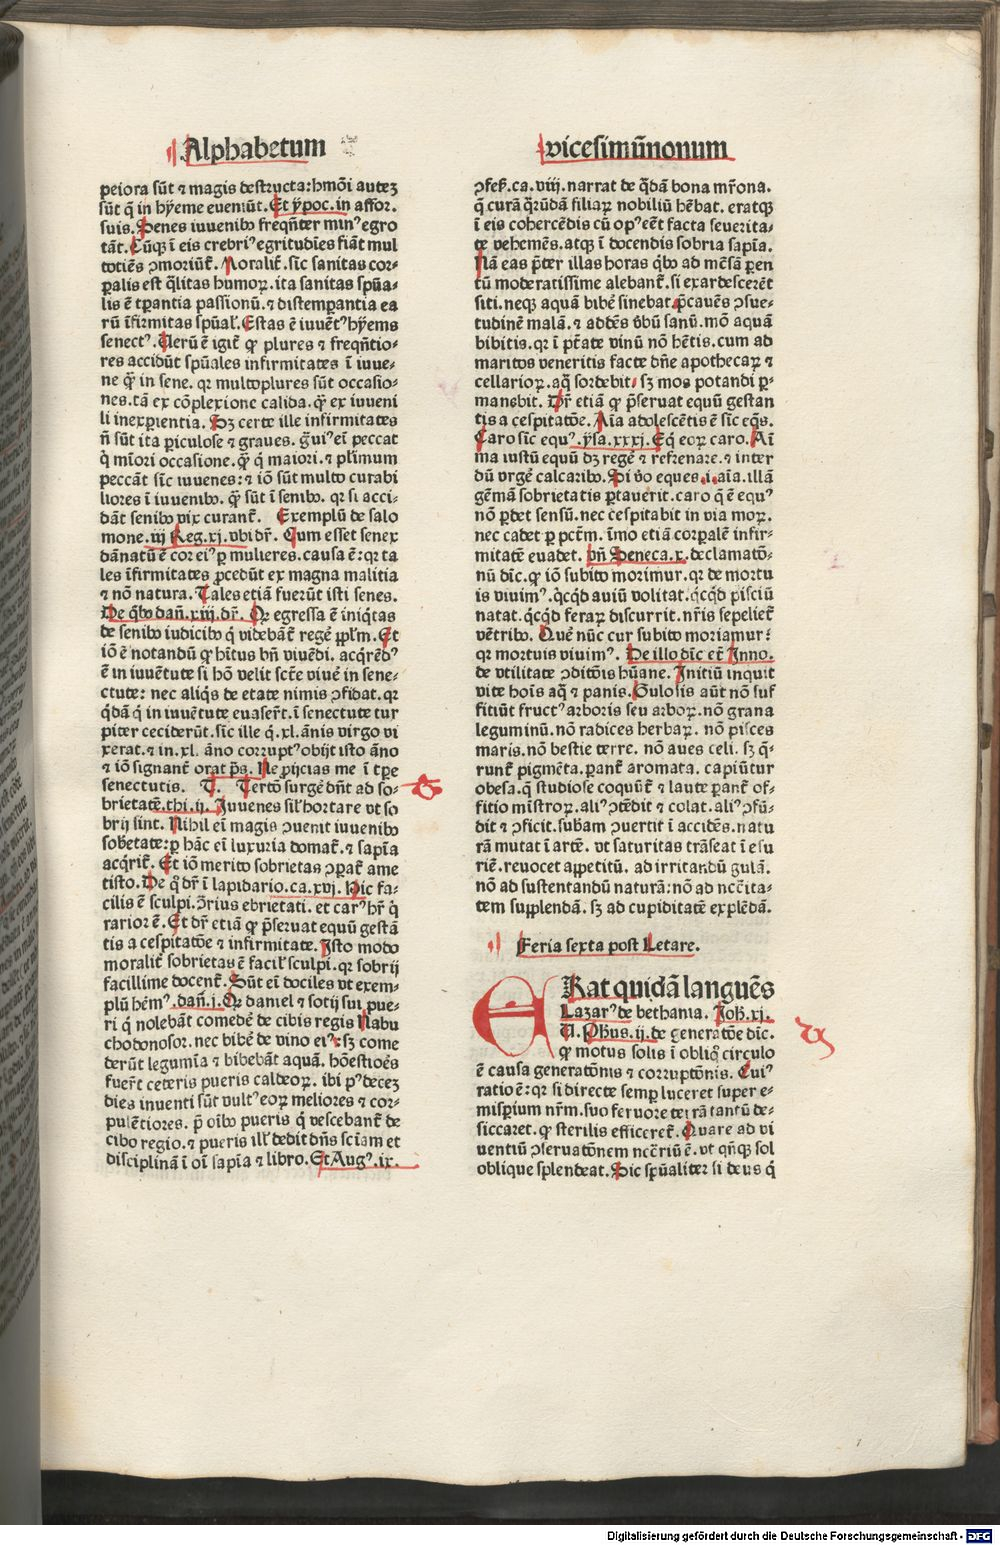 Alphabetum
vicesimūnonum
peiora sūt ⁊ magis destructa: hmōi autez
sūt q̄ in hyeme eveniūt. Et ypoc. in affor.
suis. Senes iuvenibꝰ freqn̄ter minꝰ egro
tāt. Cūq̄ ī eis crebriꝰ egritudīes fiāt mul
totiēs ꝯmoriūt̄. Moralit̄. sic sanitas cor⸗
ꝑalis est q̄litas humoꝝ. ita sanitas spūa⸗
lis ē tꝑantia passionū. ⁊ distemꝑantia ea
rū īfirmitas spūal̄. Estas ē iuuētꝰ hyems
senectꝰ. Verū ē igit̄ ꝙ plures ⁊ freqn̄tio⸗
res accidūt spūales infirmitates ī iuue⸗
ne q̄ꝫ in sene. qꝛ multoplures sūt occasio⸗
nes. tā ex cōplexione calida. q̄ꝫ ex iuueni
li inexꝑientia. Sꝫ certe ille infirmitates
n̄ sūt ita ꝑiculose ⁊ graves. g̈uiꝰ eī peccat
q̇ mīori occasione. q̄ꝫ q̇ maiori. ⁊ pl̄imum
peccāt sic iuvenes: ⁊ iō sūt multo curabi
liores ī iuuenibꝰ. q̄ꝫ sūt ī senibꝰ. qꝛ si acci⸗
dāt senibꝰ vix curant̄. Exemplū de salo
mone. iij Reg. xj. vbi dr̄. Cum esset senex
dānatū ē cor eiꝰ ꝑ mulieres. causa ē: qꝛ ta
les īfirmitates ꝓcedūt ex magna malitia
⁊ nō natura. Tales etiā fuerūt isti senes.
De q̇bꝰ dan̄. xiij. dr̄. Qꝛ egressa ē iniq̇tas
de senibꝰ iudicibꝰ q̇ videbāt̄ regē ppl̄m. Et
iō ē notandū ꝙ hītus bn̄ viuēdi. acq̇rēdꝰ
ē in iuuētute si hō velit sct̄e viuē in sene⸗
ctute: nec aliq̇s de etate nimis ꝯfidat. qꝛ
q̇dā q̇ in iuuētute euaser̄t. ī senectute tur
piter ceciderūt. sic ille q̇. xl. ānis virgo vi
xerat. ⁊ in. xl. āno corruptꝰ obijt isto āno
⁊ iō signant̄ orat ps̄. Ne ꝓijcias me ī tꝑe
senectutis. T. Tertō surgē dn̄t ad so⸗
brietatē. thi. ij. Iuvenes sil̄ hortare vt so
brij sint. Nihil eī magis ꝯuenit iuuenibꝰ
sobetate: ꝑ hāc eī luxuria domat̄. ⁊ sapīa
acq̇rit̄. Et iō merito sobrietas ꝯꝑat̄ ame
tisto. De q̊ dr̄ ī lapidario. ca. xvj. Hic fa⸗
cilis ē sculpi. ꝯ̄rius ebrietati. et carꝰ hr̄ q̇
rarior ē. Et dr̄ etiā ꝙ p̄seruat equū gestā
tis a cespitatōe ⁊ infirmitate. Isto modo
moralit̄ sobrietas ē facilꝰ sculpi. qꝛ sobrij
facillime docent̄. Sūt eī dociles vt exem⸗
plū hēmꝰ. dan̄. j. Qꝛ daniel ⁊ sotij sui pue⸗
ri q̇ nolebāt comedē de cibis regis Nabu
chodonosoꝛ. nec bibē de vino eiꝰ. sꝫ come
derūt legumīa ⁊ bibebāt aquā. hōestioēs
fuer̄t ceteris pueris caldeoꝝ. ibi pꝰ decez
dies inventi sūt vultꝰ eoꝝ meliores ⁊ cor⸗
pulētiores. p̄ oībꝰ pueris q̇ vescebant̄ de
cibo regio. ⁊ pueris ill̄ dedit dn̄s scīam et
disciplinā ī oī sapīa ⁊ libro. Et Augꝰ. ix.
ꝯfess̄. ca. viij. narrat de q̄dā bona mr̄ona.
q̄ curā q̄rūdā filiaꝝ nobiliū hēbat. eratqꝫ
ī eis cohercēdis cū opꝰ eēt facta severita⸗
te vehemēs. atqꝫ ī docendis sobria sapīa.
Nā eas p̄ter illas horas q̇bꝰ ad mēsā ꝑen
tū moderatissime alebant̄. si exardescerēt
siti. neqꝫ aquā bibē sinebat p̄cauēs ꝯsue⸗
tudinē malā. ⁊ addēs v̄bū sanū. mō aquā
bibitis. qꝛ ī ptāte vinū nō hētis. cum ad
maritos veneritis facte dn̄e apothecaꝝ ⁊
cellarioꝝ. aq̄ sordebit. sꝫ mos potandi ꝑ⸗
manebit. Dr̄ etiā ꝙ p̄seruat equū gestan
tis a cespitatōe. Aīa adolescētis ē sic eq̄s.
Caro sic equꝰ. ysa. xxxj. Eq̇ eoꝝ caro. Aī
ma iustū equū dꝫ regē ⁊ refrenare. ⁊ inter
dū vrgē calcaribꝰ. Si v̇o eques. i. aīa. illā
gēmā sobrietatis ꝑtaverit. caro q̄ ē equꝰ
nō ꝑdet sensū. nec cespitabit in via moꝝ.
nec cadet ꝑ pctm̄. īmo etiā corꝑalē infir⸗
mitatē euadet. bn̄ Seneca. x. declamatō⸗
nū dīc. ꝙ iō subito morimur. qꝛ de mortu
is viuimꝰ. q̇cq̇d auiū volitat. q̇cq̇d pisciū
natat. q̇cq̇d feraꝝ discurrit. nr̄is sepelit̄
vētribꝰ. Quē nūc cur subito moriamur:
qꝛ mortuis viuimꝰ. De illo dīc et̄ Inno.
de vtilitate ꝯditōis hūane. Initiū inquit
vite hoīs aq̄ ⁊ panis. Gulosis aūt nō suf
fitiūt fructꝰ arboris seu arboꝝ. nō grana
leguminū. nō radices herbaꝝ. nō pisces
maris. nō bestie terre. nō aues celi. sꝫ q̄⸗
runt̄ pigmēta. ꝑant̄ aromata. capiūtur
obesa. q̄ studiose coquūt̄ ⁊ laute ꝑant̄ of⸗
fitio mīstroꝝ. aliꝰ ꝯtēdit ⁊ colat. aliꝰ ꝯfū⸗
dit ⁊ ꝯficit. subam ꝯuertit ī accidēs. natu
rā mutat ī artē. vt saturitas trāseat ī esu
riē. reuocet appetitū. ad irritandū gulā.
nō ad sustentandū naturā: nō ad nec̄ita⸗
tem supplendā. sꝫ ad cupiditatē explēdā.
Feria sexta post Letare.
ERat quidā languēs
Lazarꝰ de bethania. Joh̄. xj.
V. Ph̄us. ij. de generatōe dīc.
ꝙ motus solis ī obliq̊ circulo
ē causa generatōnis ⁊ corruptōnis. Cuiꝰ
ratio ē: qꝛ si directe semꝑ luceret super e⸗
misꝑium nr̄m. suo fervore terrā tantū de⸗
siccaret. ꝙ sterilis efficeret̄. Quare ad vi
uentiū ꝯseruatōnem nec̄riū ē. vt qn̄qꝫ sol
oblique splendeat. Sic spūaliter si deus q̇
Digitalisierung gefördert durch die Deutsche Forschungsgemeinschaft - DFG